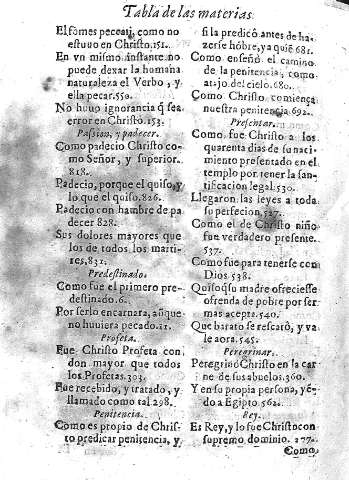 Tabla de las materias.
El fomes peccati, como no
estuuo en Christo. 151.
En vn mismo instante no
puede dexar la humana
naturaleza el Verbo, y
ella pecar. 550.
No huuo ignorancia q̃ sea
error en Christo. 153.
Passion, y padecer.
Como padecio Christo co-
mo Señor, y superior.
818.
Padecio, porque el quiso, y
lo que el quiso. 826.
Padecio con hambre de pa
decer 828.
Sus dolores mayores que
los de todos los marti-
res, 831.
Predestinado.
Como fue el primero pre-
destinado. 6.
Por serlo encarnara, aũque
no huuiera pecado. 21.
Profeta.
Fue Christo Profeta con
don mayor que todos
los Profetas. 303.
Fue recebido, y tratado, y
llamado como tal 298.
Penitencia.
Como es propio de Chris-
to predicar penitencia, y
si la predicò antes de ha-
zerse hõbre, ya quiẽ 681.
Como enseñò el camino
de la penitencia, como
atajo del cielo. 680.
Como Christo comiença
nuestra penitencia. 692.
Presentar.
Como fue Christo a los
quarenta dias de su naci-
miento presentado en el
templo por tener la san-
tificacion legal. 530.
Llegaron las leyes a toda
su perfecion, 527.
Como el de Christo niño
fue verdadero presente.
537.
Como fue para tenerse con
Dios. 538.
Quiso q̃ su madre ofreciesse
ofrenda de pobre por ser
mas acepto. 540.
Que barato se rescatò, y va
le aora. 545.
Peregrinar.
Peregrinò Christo en la car
ne de sus abuelos. 360.
Y en su propia persona, yẽ-
do a Egipto. 562.
Rey.
Es Rey, y lo fue Christo con
supremo dominio. 277.
Como